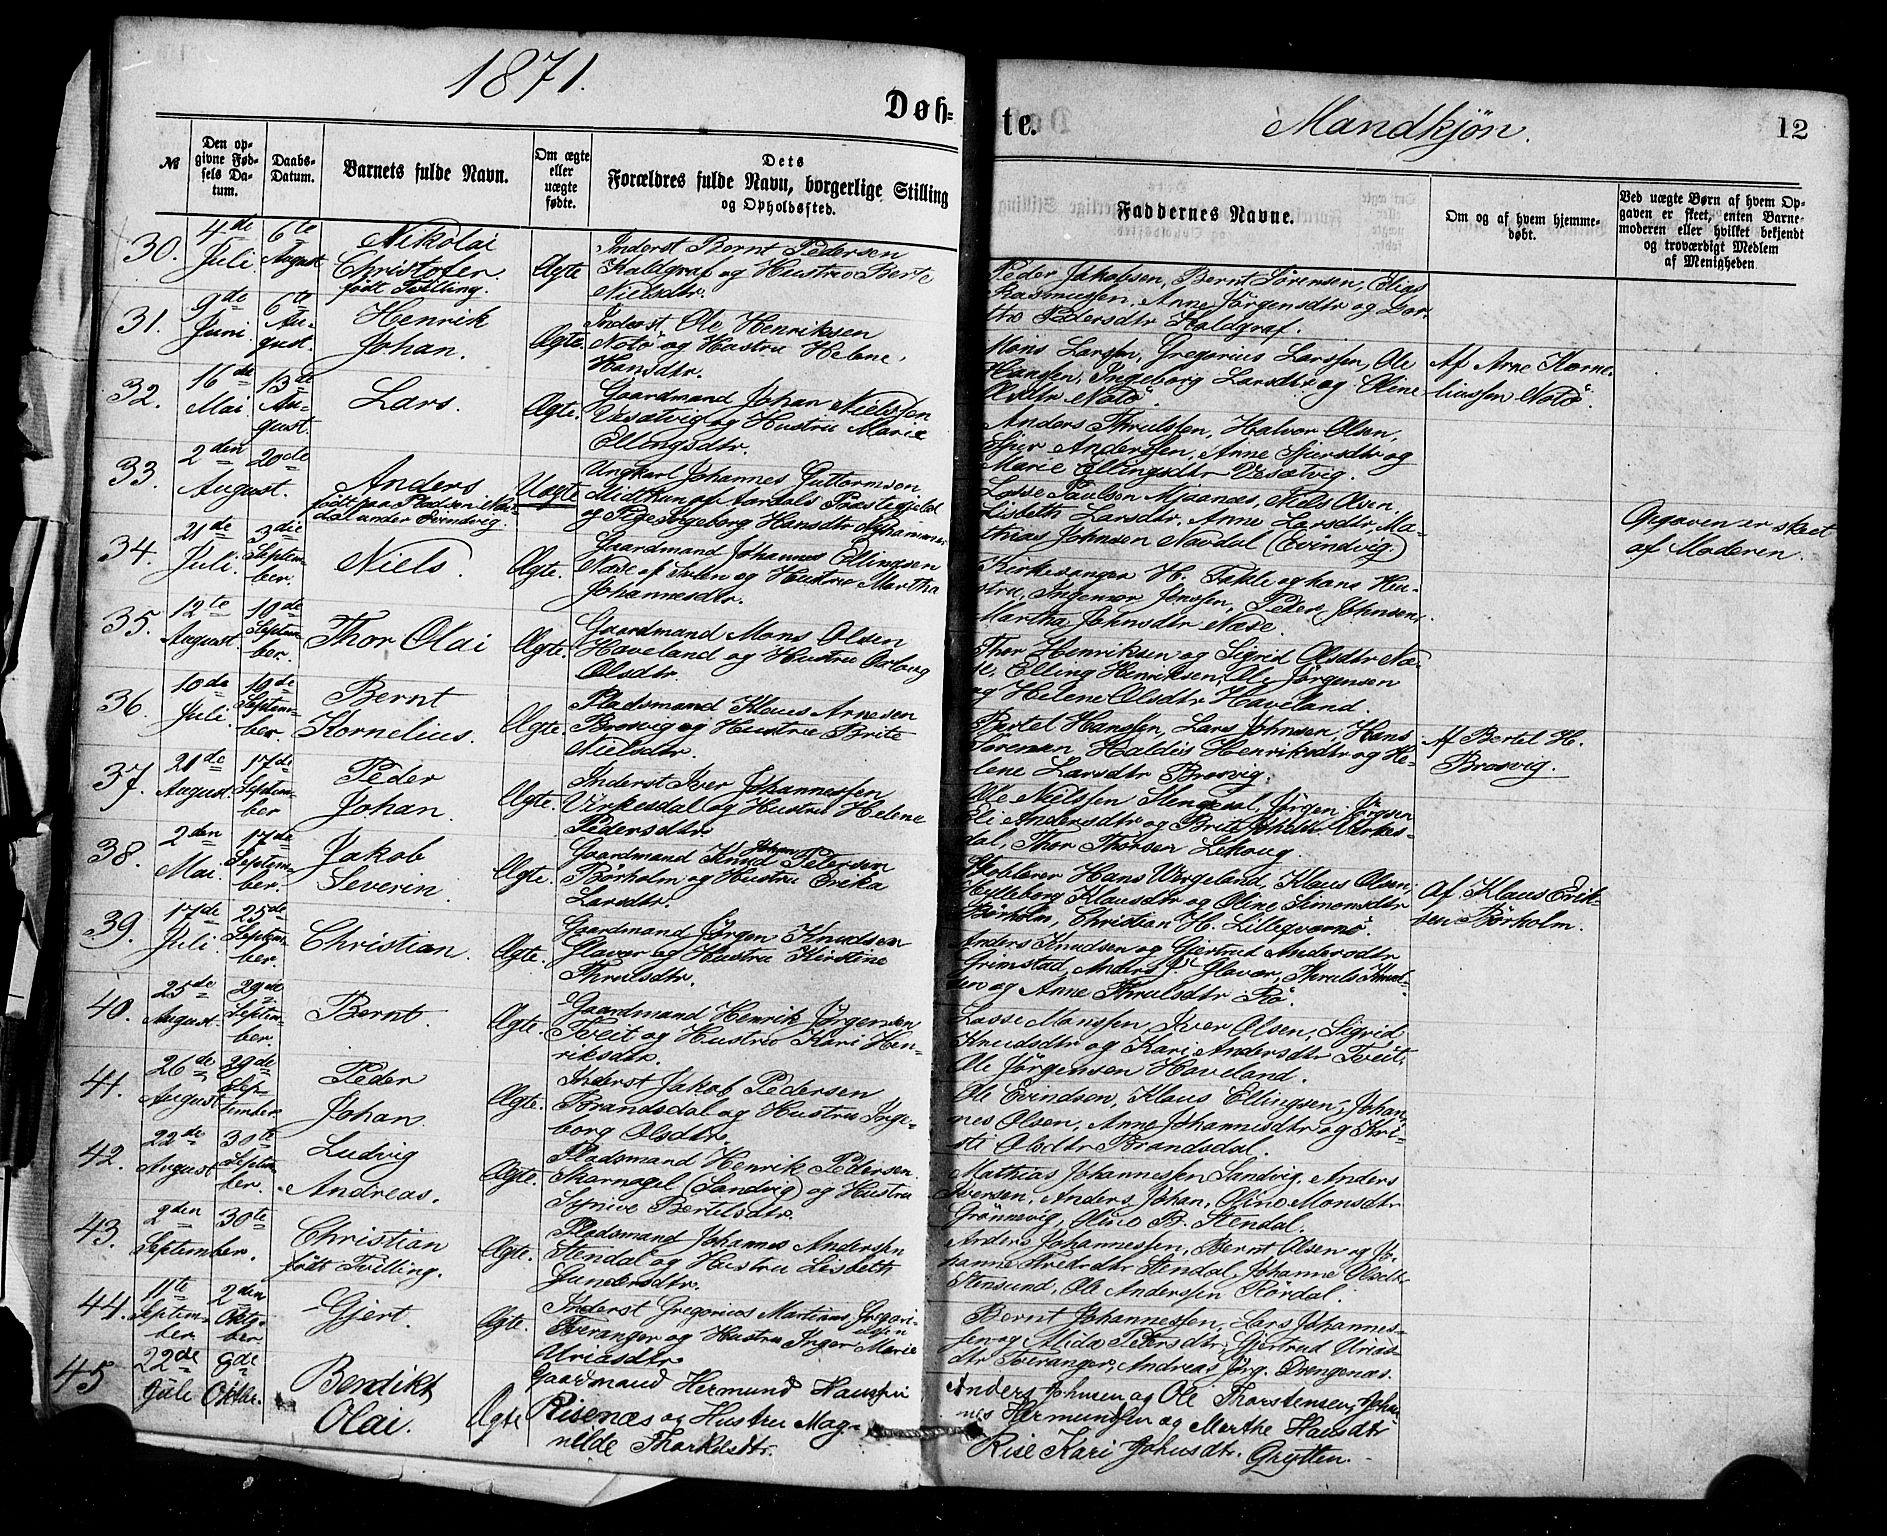 1871.
Døb-
te.
Mandkjøn.
12
№
Den op-
givne Fød-
sels Da-
tum.
Daabs-
Datum.
Barnets fulde Navn.
Om ægte
eller
uægte
fødte.
Dets
Forældres fulde Navn, borgerlige Stilling
og Opholdssted.
Faddernes Navne.
Om og af hvem hjemme-
døbt.
Ved uægte Børn af hvem Op-
gaven er skeet, enten Barne-
moderen eller hvilket bekjendt
og troværdigt Medlem
af Menigheden
30. 4de Juli 6te August
Nikolai
Christofer
født Tvilling.
Ægte
Inderst Bernt Pedersen
Koldgraf og Hustru Berte
Nielsdtr.
Peder Jakobsen, Bernt Sørensen, Elias
Rasmussen, Anne Jørgensdtr og Dor-
the Pedersdtr Koldgraf.
31. 9de Juni 6te Au-
gust.
Henrik
Johan.
Ægte.
Inderst Ole Henriksen
Notø og Hustru Helene
Hansdtr.
Mons Larssen, Gregorius Larssen, Ole
Hanssen, Ingeborg Larsdtr og Oline
Olsdtr Notø.
Af Arne Korne-
liussen Notø.
32. 16de Mai 13de Au-
gust.
Lars.
Ægte.
Gaardmand Johan Nielssen
Vesætvig og Hustru Marie
Ellingsdtr.
Anders Thrulssen, Halvor Olsen,
Sjur Anderssen, Anne Sjursdtr og
Marie Ellingsdtr Vesætvig.
33. 2den 20de
August.
Anders
født paa Pladsen i Nav-
dal under Evindvig.
Uægte
Ungkarl Johannes Guttormsen
Midthun af Aardals Præstegjeld
og Pige Ingeborg Hansdtr
Lasse Paulsen Mjaanæs, Niels Olsen,
Lisbeth Larsdtr, Anne Larsdtr Ma-
thias Johnsen Navdal (Evindvig.)
Opgaven er skeet
af Moderen.
34. 21de Juli. 3die Septem-
ber.
Niels.
Ægte.
Gaardmand Johannes Ellingsen
Næse af Sulen og Hustru Martha
Johannesdtr.
Kirkesanger H. Takle og hans Hu-
stru, Ingemor Jenssen, Peder Johnsen,
Martha Johnsdtr Næse.
35. 12te August. 10de Septem-
ber.
Thor Olai
Ægte.
Gaardmand Mons Olsen
Haveland og Hustru Førborg
Olsdtr.
Thor Henriksen og Sigrid Olsdtr Næ-
se, Elling Henriksen, Ole Jørgensen
og Helene Olsdtr Haveland.
36. 10de Juli. 10de Septem-
ber.
Bernt
Kornelius.
Ægte.
Pladsmand Klaus Arnesen
Brosvig og Hustru Brite
Nielsdtr.
Bertel Hanssen, Lars Johnsen, Hans
Foreman, Haldis Henriksdtr og He-
lene Larsdtr Brosvig.
Af Bertel H.
Brosvig.
37. 21de August. 17de Septem-
ber
Peder
Johan.
Ægte.
Inderst Iver Johannessen
Virkesdal og Hustru Helene
Pedersdtr
Ole Nielssen Stensæl, Jørgen Jørgsen
Eli Andersdtr og Brite Virkes-
dal, Thor Thorsen Lekoug.
38. 2den Mai. 17de Septem-
ber.
Jakob
Severin.
Ægte.
Gaardmand Knud Johan Petersen
Børholm og Hustru Erika
Larsdtr.
Skolelærer Hans Vergeland, Klaus Olsen,
Hylleborg Klausdtr og Oline Simonsdtr
Børholm, Christian H. Lillegvernø.
Af Klaus Erik-
sen Børholm.
39. 17de Juli. 25de Septem-
ber.
Christian.
Ægte.
Gaardmand Jørgen Knudsen
Glavær og Hustru Kirstine
Thrulsdtr.
Anders Knudsen og Gjertrud Andersdtr
Grimstad, Anders J. Glavær, Thruls Knud-
sen og Anne Thrulsdtr Rø.
40. 25de August 29de Septem-
ber.
Bernt.
Ægte.
Gaardmand Henrik Jørgensen
Tveit og Hustru Kari Hen-
riksdtr.
Lasse Monssen, Iver Olsen, Sigrid
Knudsdtr og Kari Andersdtr Tveit,
Ole Jørgensen Haveland.
41. 26de August 29de Sep-
tember
Peder
Johan.
Ægte.
Inderst Jakob Pedersen
Brandsdal og Hustru Inge-
borg Olsdtr.
Ole Evindson, Klaus Ellingsen, Johan-
nes Olsen, Anne Johannisdtr og Kri-
sti Olsdtr Brandsdal.
42. 22de August 30te Septem-
ber.
Ludvig
Andreas.
Ægte.
Pladsmand Henrik Pedersen
Skarnagel (Sandvig) og Hustru
Synive Bertelsdtr.
Mathias Johannessen Sandvig, Anders
Iversen, Anders Johan, Oline Monsdtr
Grønnevig, Oline B. Stendal.
43. 2den 30te
September.
Christian
født Tvilling.
Ægte.
Pladsmand Johannes Anderssen
Stendal og Hustru Lisbeth
Gundersdtr.
Anders Johannessen, Bernt Olsen og Jo-
hanne Stendal, Johanne Olsdtr
Stensund, Ole Anderssen Rørdal.
44. 11te Septem-
ber 2den Octo-
ber
Gjert.
Ægte.
Inderst Gregorius Martinus Gregori-
ussen
Tveranger og Hustru Inger Marie
Uriasdtr
Bernt Johannessen, Lars Johannes-
sen og Alida Petersdtr, Gjertrud Urias-
dtr Tveranger, Andreas Jørg. Drengenæs.
45 22de Juli 8de Oktbr.
Bendikt
Olai.
Ægte
Gaardmand Hermund Hanssen
Risenæs og Hustru Mag-
nilde Thorkelsdtr.
Anders Johnsen og Ole Thorstensen, Joha-
nes Hermundsen og Marthe Hansdtr
Rise Kari Johnsdtr. Grytten.